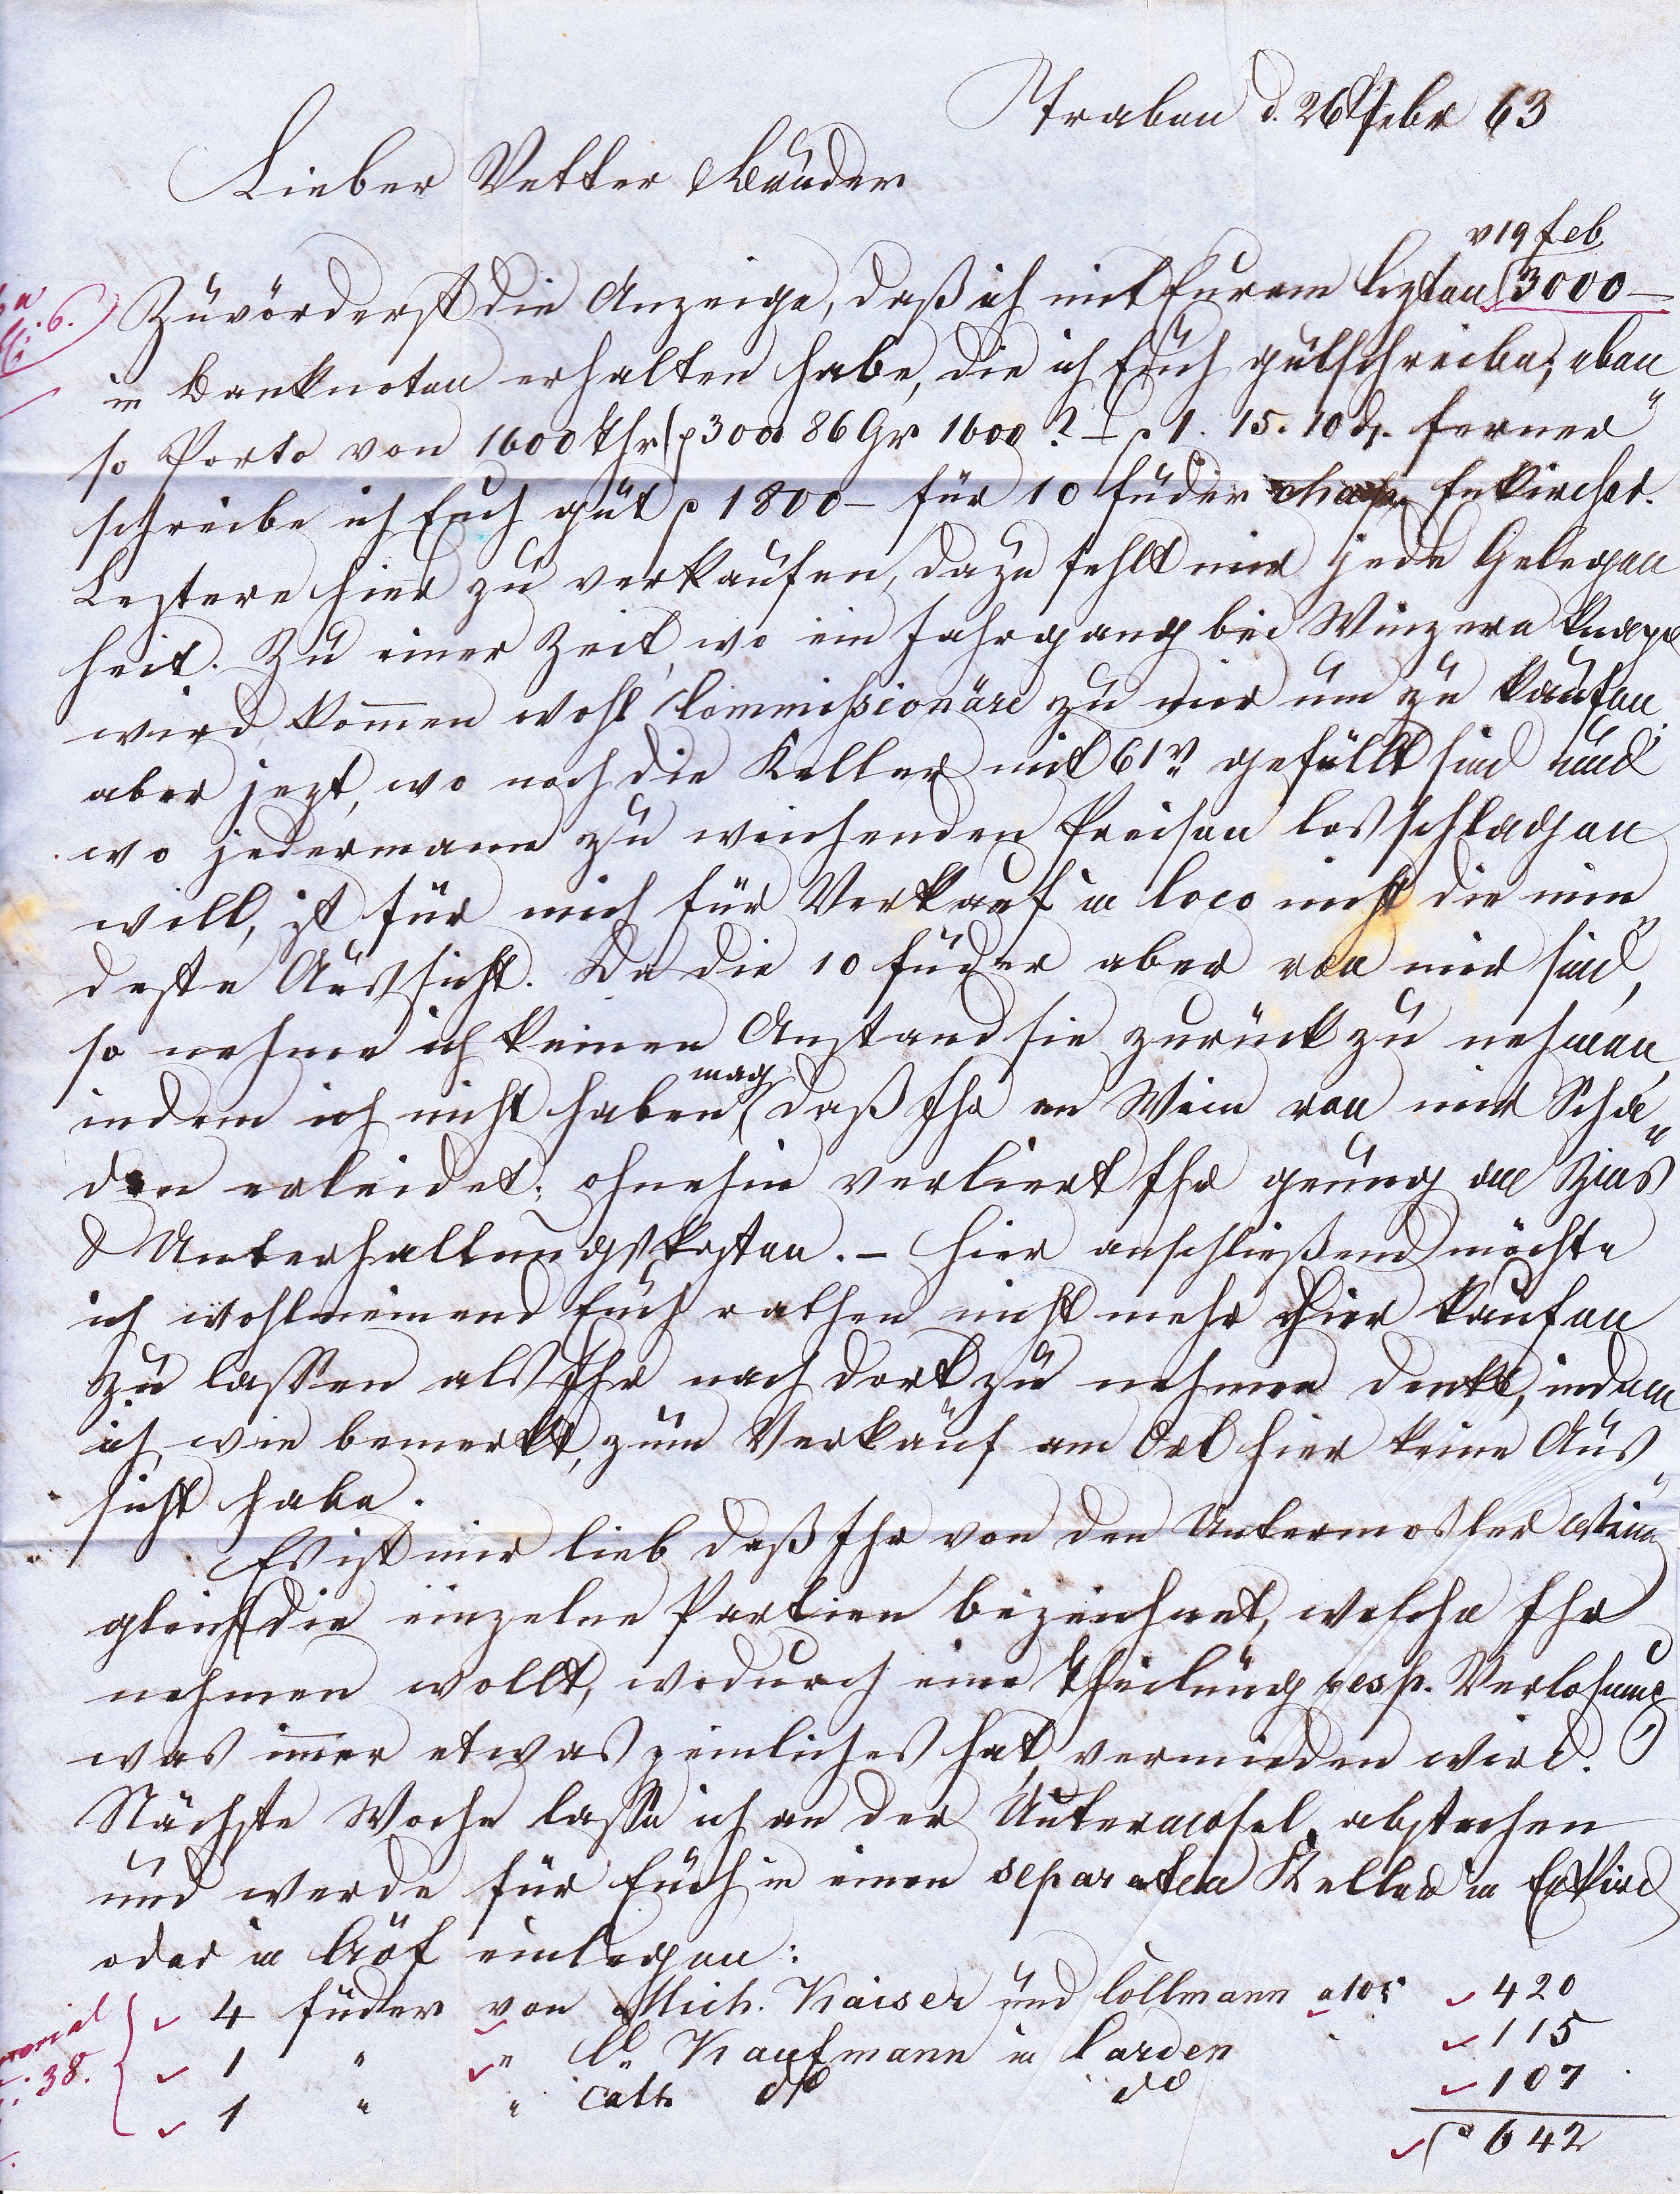 Traben d. 26 Febr 63
Lieber Vetter Bruder
v 19 feb
Zuvörderst die Anzeige, daß ich mit Eurem lezten 3000 –
in Banknoten erhalten habe, die ich Euch gutschreibe, eben
so Porto von 1600 Thr 300 86 Gr 1600 ? – 1. 15. 10 ferner
schreibe ich Euch gut 1800 – für 10 Fuder Enkircher.
Leztere hier zu verkaufen, dazu fehlt mir jede Gelegen
heit. Zu einer Zeit, wo ein Jahrgang bei Winzern knapp
wird, kom̅en wohl Commissionäre zu mir um zu kaufen
aber jezt, wo noch die Keller mit 61r gefüllt sind und
wo jedermann zu weichenden Preisen losschlagen
will, ist für mich für Verkauf in loco nicht die min
deste Aussicht. Da die 10 Fuder aber von mir sind,
so nehme ich keinen Anstand sie zurück zu nehmen,
mag
indem ich nicht haben daß Ihr an Wein von mir Scha„
den erleidet; ohnehin verliert Ihr genung an Zins
& Unterhaltungskosten. – Hier anschließend möchte
ich wohlmeinend Euch rathen nicht mehr hier kaufen
zu lassen als Ihr nach dort zu nehmen denkt, indem
ich, wie bemerkt, zum Verkauf am Ort hier keine Aus
sicht habe.
Es ist mir lieb daß Ihr von den Untermosler Wein
gleich die einzelne Partien bezeichnet, welche Ihr
nehmen wollt, wodurch eine Theilung resp. Verlosung
was im̅er etwas peinliches hat, vermieden wird.
Nächste Woche lasse ich an der Untermosel abstechen
und werde für Euch in einen separaten Keller in Enkirch
oder in Löf einlegen:
4 Fuder von Mich. Kaiser und Collmann a 105 420
1 " " Kaufmann in Carden 115
1 " " Cath. do do 107
642
38.